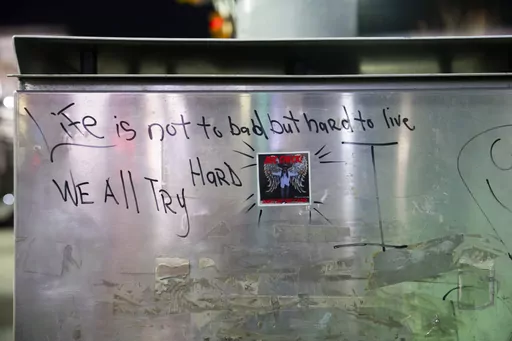 Life is not to bad but hard to live
WE All TRY HARD
I